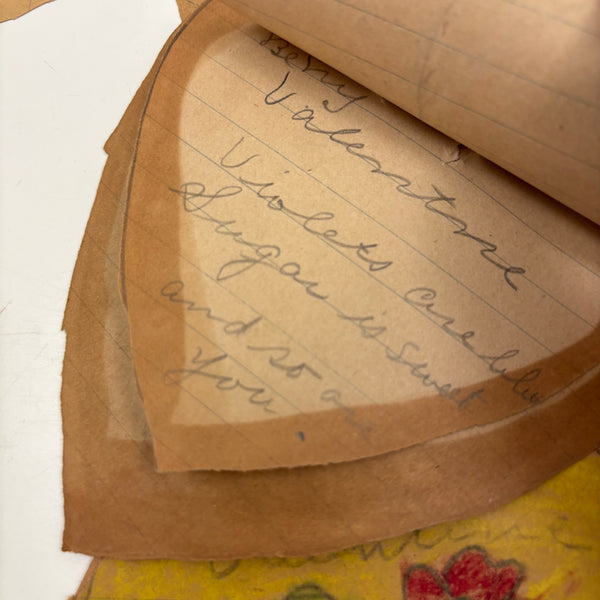 Valentine
Violets are blue
Sugar is sweet
and so are
You